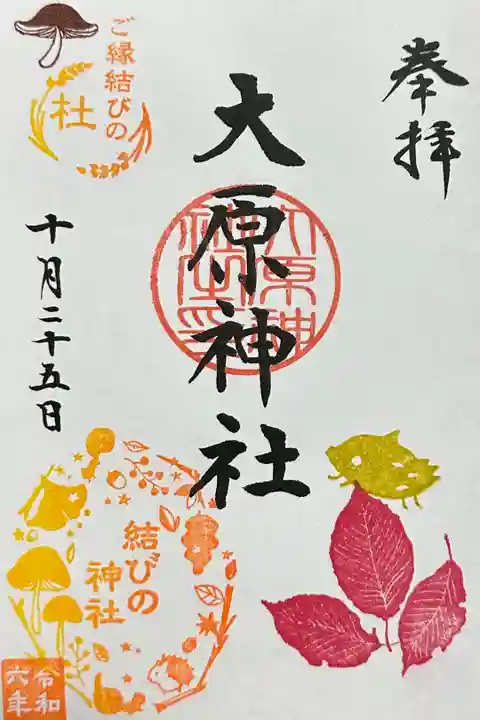 奉拝
大原神社
ご縁結びの
杜
十月二十五日
結びの
神社
令和
六年